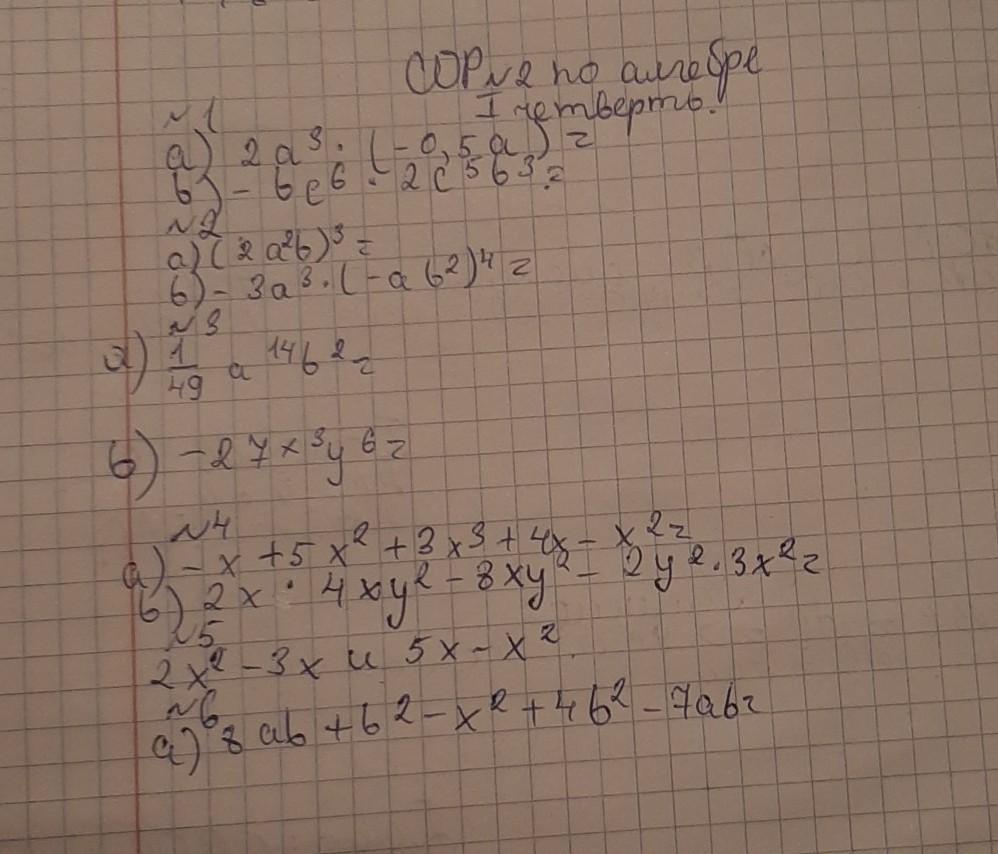 СОР№2 по алгебре
I четверть.
№1
а) 2a³·(-0,5a)=
b) - bc⁶·2c⁵b³=
№2
а) (2a²b)³=
б) - 3a³·(-ab²)⁴=
№3
а) 1/49 a¹⁴b²=
б) -27x³y⁶=
№4
а) -x+5x²+3x³+4x-x²=
б) 2x·4xy²-8xy²-2y²·3x²=
№5
2x²-3x и 5x-x².
№6
а) 8ab+b²-x²+4b²-7ab=